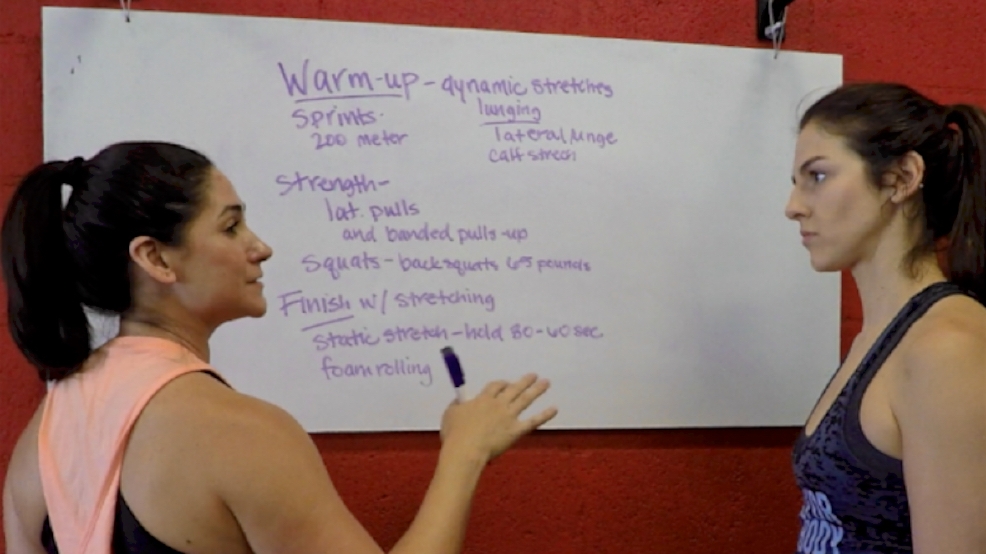 Warm-up - dynamic stretches
Sprints. lunging
200 meter lateral lunge
calf strech
Strength-
lat. pulls
and banded pulls-up
Squats - backsquats 65 pounds
Finish w/ stretching
Static stretch - hold 30-60 sec
foam rolling